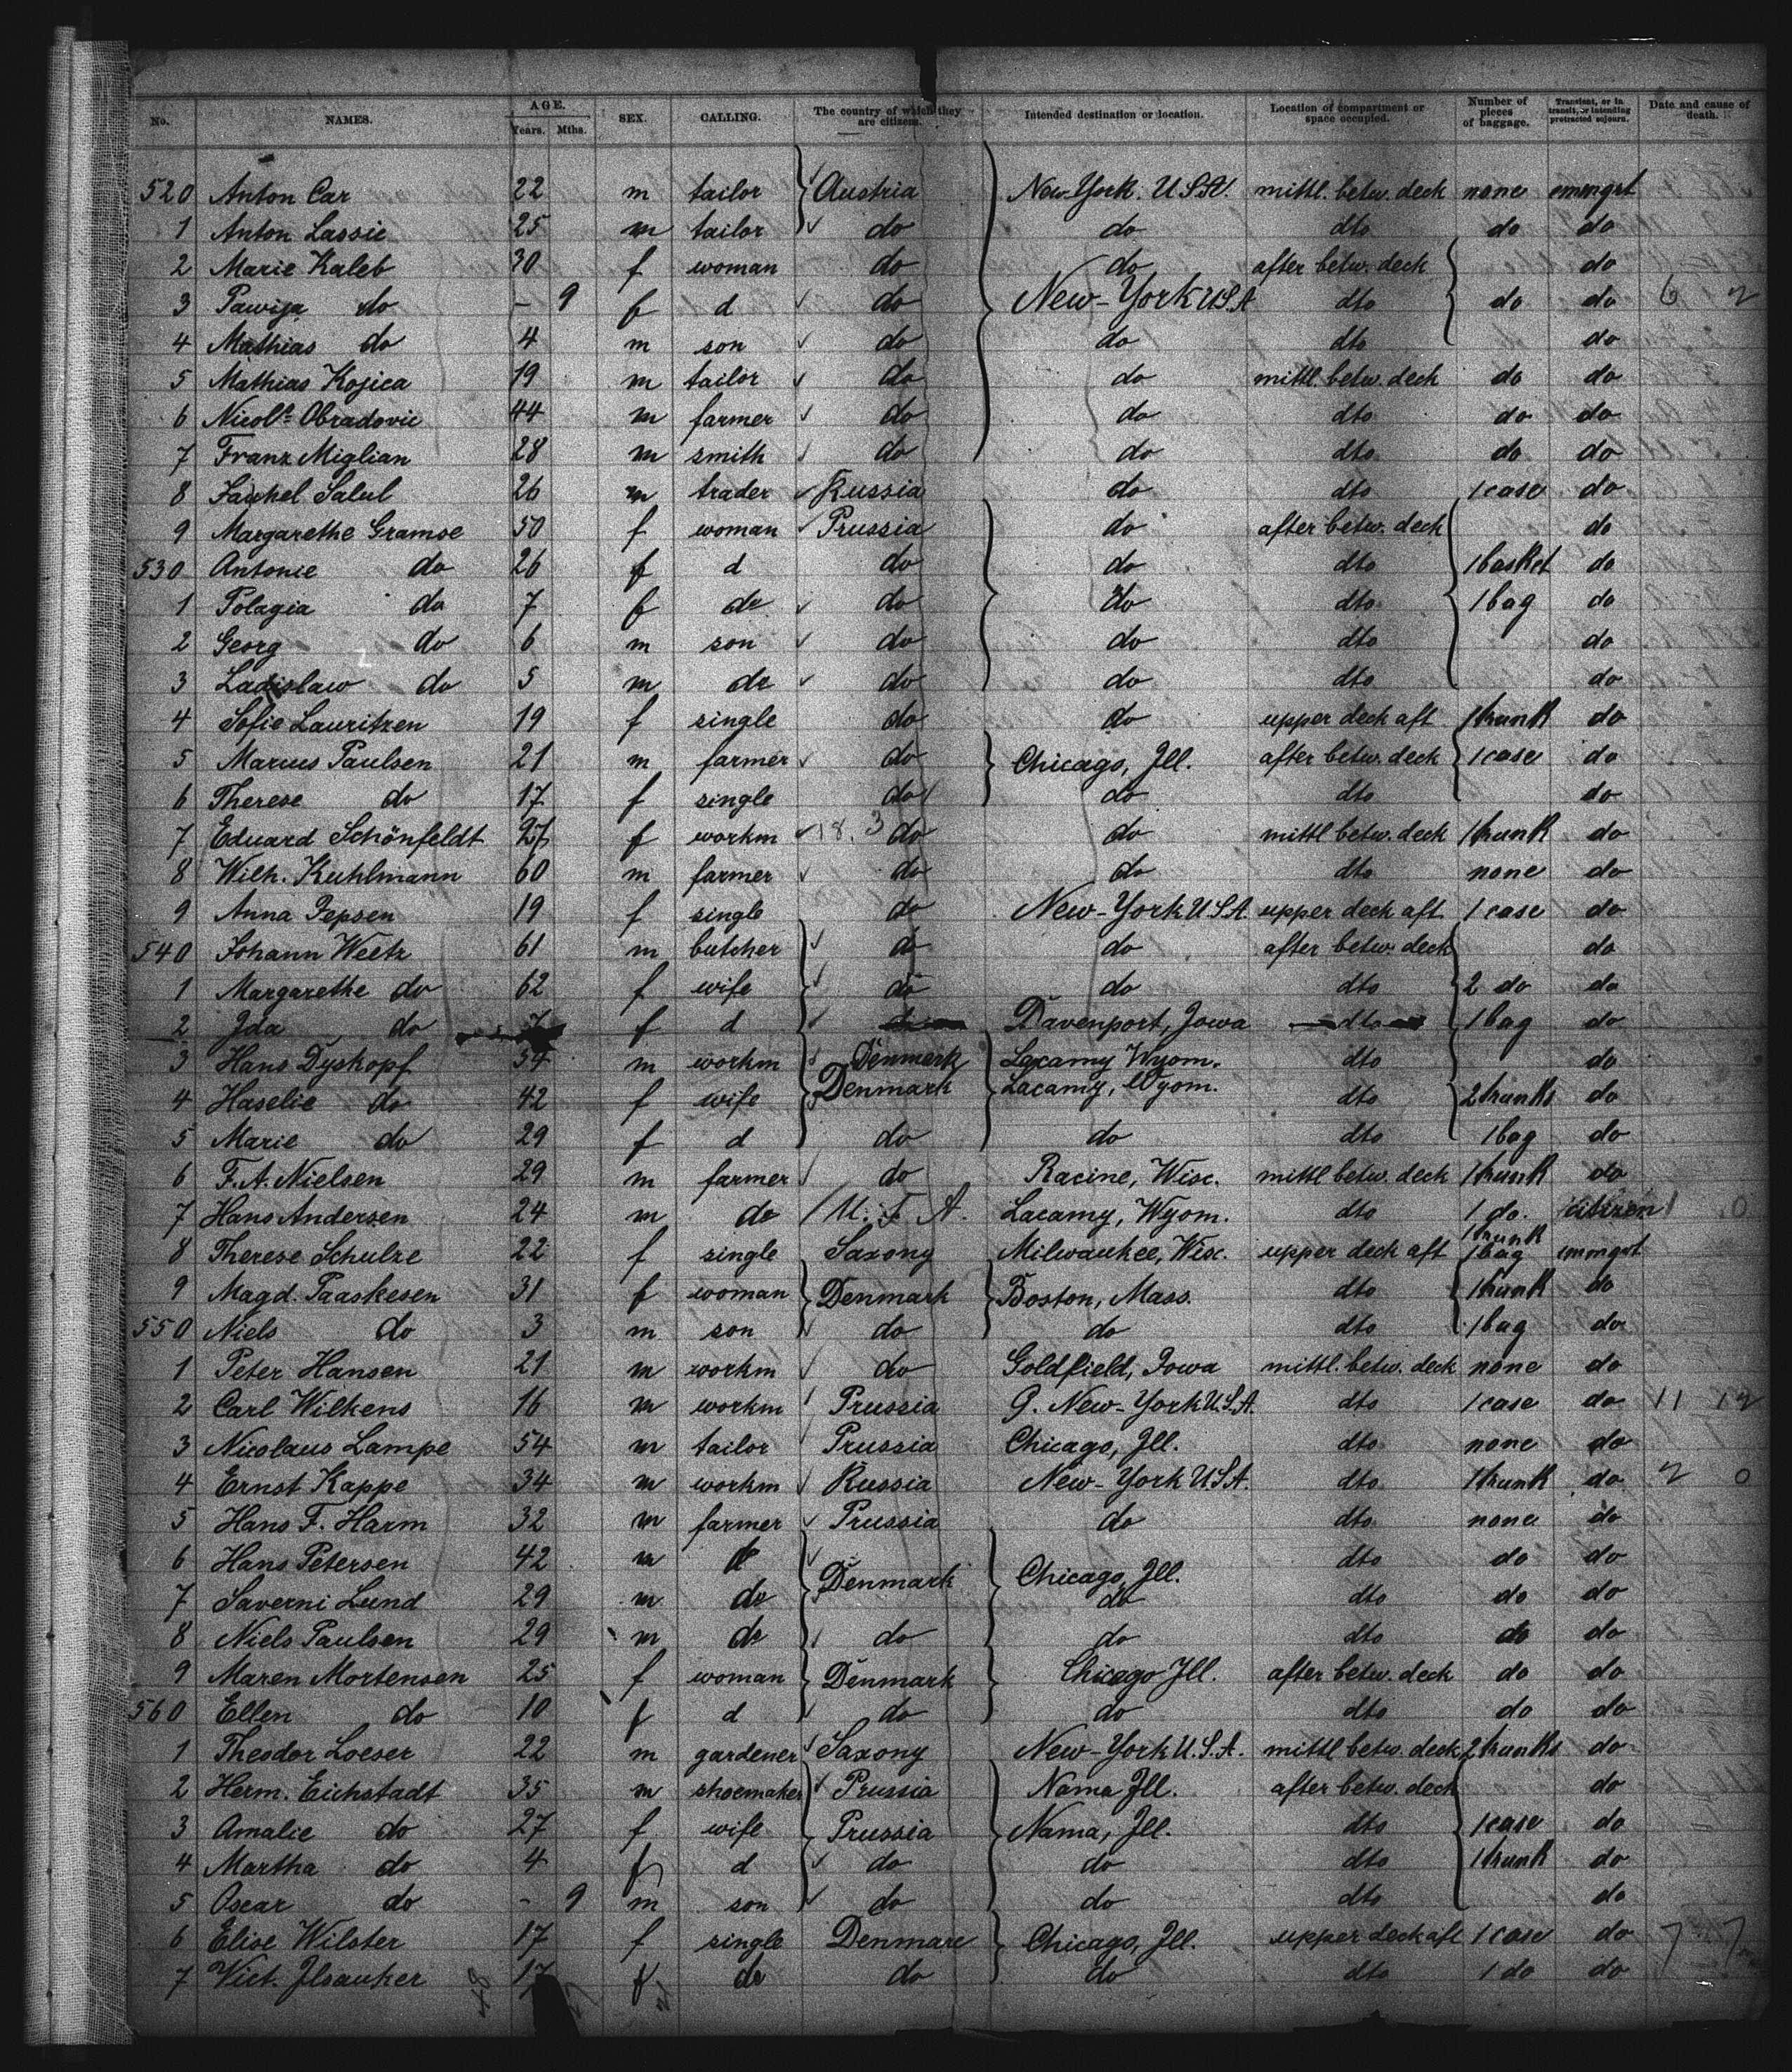 No. NAMES. AGE. Years. Mths. SEX. CALLING. The country of which they are citizens. Intended destination or location. Location of compartment or space occupied. Number of pieces of baggage. Transient, or in transit, or intending protracted sojourn. Date and cause of death.
520 Anton Car 22 m tailor Austria New-York. U.S.A. mittl. betw. deck none emmgrt
1 Anton Lassie 25 m tailor do do dto do do
2 Marie Kaleb 30 f woman do do after betw. deck do
3 Pawija do - 9 f d do New-York U.S.A dto do do 6
4 Mathias do 4 m son do do dto do
5 Mathias Kojica 19 m tailor do do mittl. betw. deck do do
6 Nicols Obradovic 44 m farmer do do dto do do
7 Franz Miglian 28 m smith do do dto do do
8 Salul 26 m trader Russia do dto 1 case do
9 Margarethe Gramse 50 f woman Prussia do after betw. deck do
530 Antonie do 26 f d do do dto 1 basket do
1 Polagia do 7 f do do do dto 1 bag do
2 Georg do 6 m son do do dto do
3 Ladislaw do 5 m do do do dto do
4 Sofie Lauritzen 19 f single do do upper deck aft 1 trunk do
5 Marius Paulsen 21 m farmer do Chicago, Ill. after betw. deck 1 case do
6 Therese do 17 f single do do dto do
7 Eduard Schönfeldt 27 f workm 18. 3 do do mittl betw. deck 1 trunk do
8 Wilh. Kuhlmann 60 m farmer do do dto none do
9 Anna Jepsen 19 f single do New-York U.S.A. upper deck aft 1 case do
540 Johann Weetz 61 m butcher do do after betw. deck do
1 Margarethe do 62 f wife do do dto 2 do do
2 Ida do 7 f d Davenport, Iowa dto 1 bag do
3 Hans Dyskopf 34 m workm Denmark Lacamy Wyom. dto do
4 Haselie do 42 f wife Denmark Lacamy, Wyom. dto 2 trunks do
5 Marie do 29 f d do do dto 1 bag do
6 F. A. Nielsen 29 m farmer do Racine, Wisc. mittl betw. deck 1 trunk do
7 Hans Andersen 24 m do U. S. A. Lacamy, Wyom. dto 1 do. citizen 0
8 Therese Schulze 22 f single Saxony Milwaukee, Wisc. upper deck aft 1 trunk 1 bag emmgrt
9 Magd. Paaskesen 31 f woman Denmark Boston, Mass. dto 1 trunk do
550 Niels do 3 m son do do dto 1 bag do
1 Peter Hansen 21 m workm do Goldfield, Iowa mittl. betw. deck none do
2 Carl Wilkens 16 m workm Prussia P. New-York U.S.A. dto 1 case do 11
3 Nicolaus Lampe 54 m tailor Prussia Chicago, Ill. dto none do
4 Ernst Kappe 34 m workm Russia New-York U.S.A. dto 1 trunk do 0
5 Hans F. Harm 32 m farmer Prussia do dto none do
6 Hans Petersen 42 m do Denmark Chicago, Ill. dto do do
7 Saverni Lund 29 m do do dto do do
8 Niels Paulsen 29 m do do do dto do do
9 Maren Mortensen 25 f woman Denmark Chicago Ill. after betw. deck do do
560 Ellen do 10 f d do do dto do do
1 Theodor Loeser 22 m gardener Saxony New-York U.S.A. mittl betw. deck 2 trunks do
2 Herm. Eichstadt 35 m shoemaker Prussia Nama Ill. after betw. deck do
3 Amalie do 27 f wife Prussia Nama, Ill. dto 1 case do
4 Martha do 4 f d do do dto 1 trunk do
5 Oscar do - 9 m son do do dto do
6 Elise Wilster 17 f single Denmarc Chicago, Ill. upper deck aft 1 case do 7 7
7 Vict. Ilsauker 17 f do do do dto 1 do do